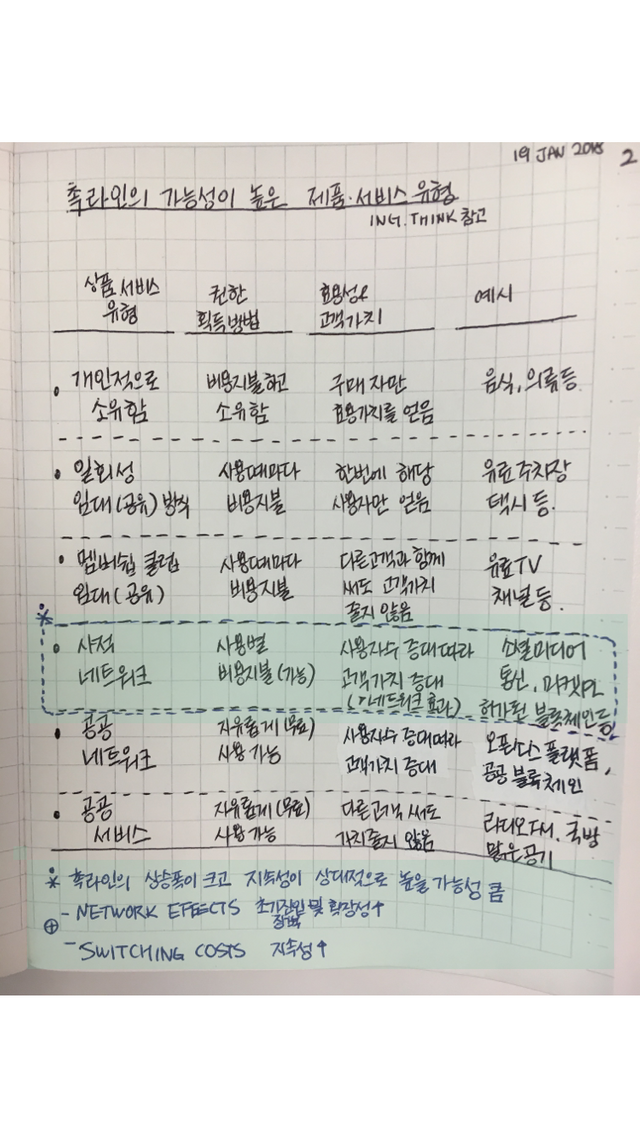 19 JAN 2018 2
흑라인의 가능성이 높은 제품·서비스 유형
ING.THINK 참고
상품 서비스 유형 권한 획득방법 효용성& 고객가치 예시
• 개인적으로 비용지불하고 구매자만 음식, 의류등
소유함 소유함 효용가치를 얻음
• 일회성 사용때마다 한번에 해당 유료주차장
임대(공유)방식 비용지불 사용자만 얻음 택시 등.
• 멤버쉽 클럽 사용때마다 다른고객과 함께 유료TV
임대(공유) 비용지불 써도 고객가치 채널 등.
줄지 않음
* • 사적 사용별 사용자수 증대따라 소셜미디어
네트워크 비용지불(가능) 고객가치 증대 통신, 마켓PL
(네트워크 효과) 허가된 블럭체인등
• 공공 자유롭게(무료) 사용자수 증대따라 오픈소스 플랫폼,
네트워크 사용 가능 고객가치 증대 공공 블록체인
• 공공 자유롭게(무료) 다른고객 써도 라디오, 국방
서비스 사용 가능 가치줄지 않음 맑은공기
* 흑라인의 상승폭이 크고 지속성이 상대적으로 높을 가능성 큼
- NETWORK EFFECTS 초기진입 및 확장성↑
장벽
⊕
- SWITCHING COSTS 지속성↑